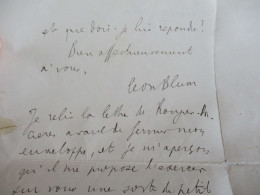 et que dois-je lui répondre !
Bien affectueusement
à vous,
Léon Blum
Je relis la lettre de
avant de fermer mon
enveloppe, et je m'aperçois
qu'il me propose d'exercer
sur vous une sorte de petit